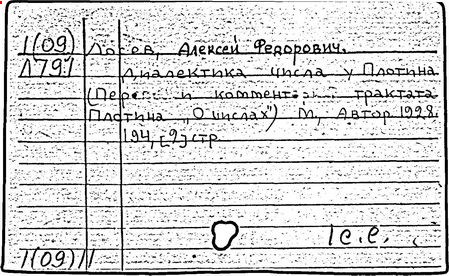 1(09) Лосев, Алексей Федорович.
Л791 Диалектика числа у Плотина
(Перевод и комментарий трактата
Плотина „О числах") М., Автор 1928.
194, [2] стр
1 е.е.
1(09)11